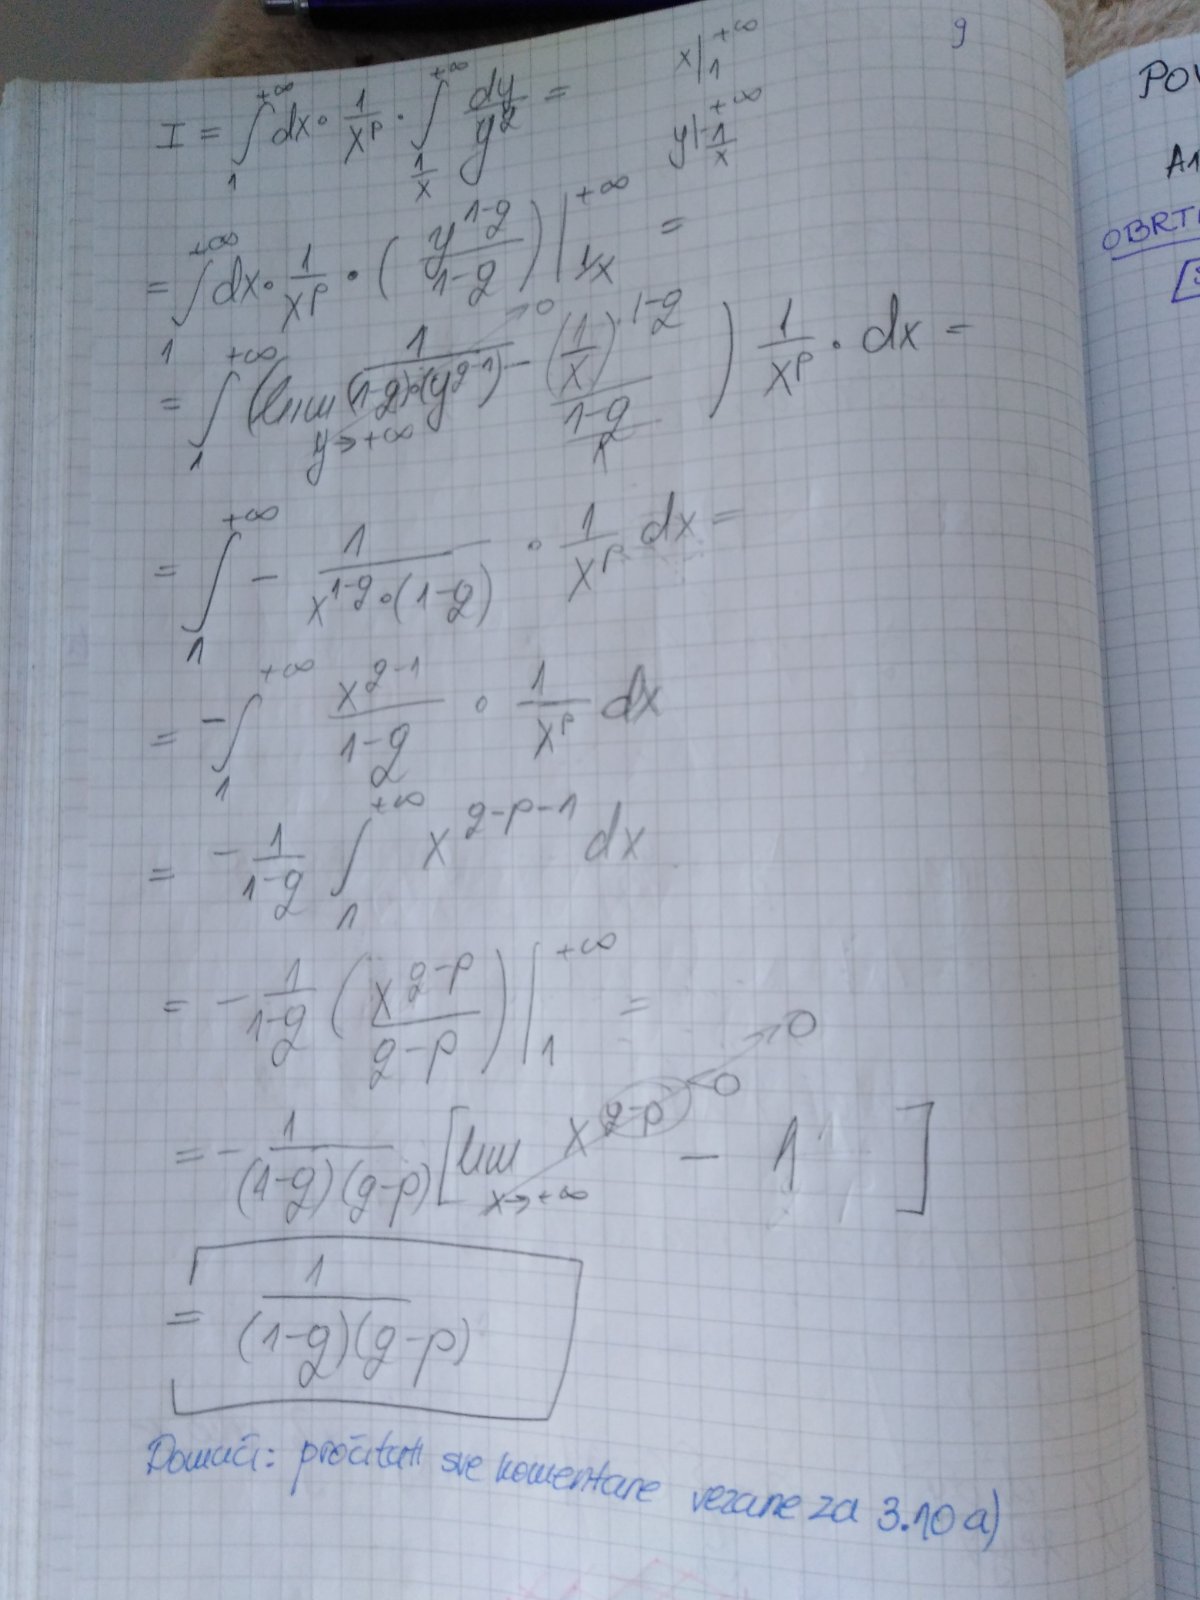 9
I = ∫_1^{+∞} dx · 1/x^p · ∫_{1/x}^{+∞} dy/y^q = x|_1^{+∞}
y|_{1/x}^{+∞}
= ∫_1^{+∞} dx · 1/x^p · ( y^{1-q}/(1-q) ) |_{1/x}^{+∞} =
= ∫_1^{+∞} ( lim_{y→+∞} 1/((1-q)·(y^{q-1})) →0 - (1/x)^{1-q}/(1-q) ) 1/x^p · dx =
= ∫_1^{+∞} - 1/(x^{1-q}·(1-q)) · 1/x^p dx =
= - ∫_1^{+∞} x^{q-1}/(1-q) · 1/x^p dx
= - 1/(1-q) ∫_1^{+∞} x^{q-p-1} dx
= - 1/(1-q) ( x^{q-p}/(q-p) ) |_1^{+∞} =
= - 1/((1-q)(q-p)) [ lim_{x→+∞} x^{q-p} <0 →0 - 1 ]
= 1/((1-q)(q-p))
Domaći: pročitati sve komentare vezane za 3.10 a)
POV
A1
OBRT